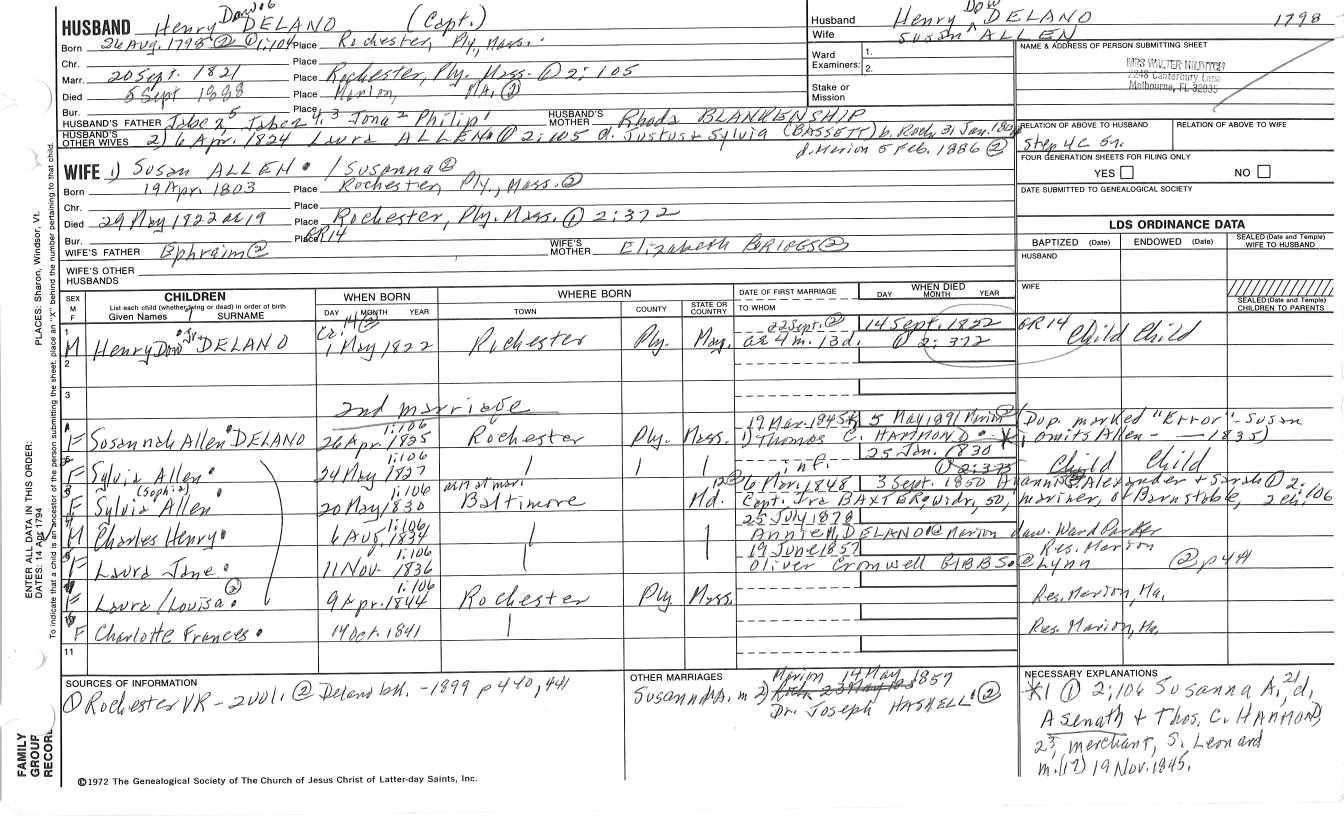 HUSBAND Henry Dow DELANO (Capt.)
Born 26 Aug. 1798 ② ① 1:104 Place Rochester, Ply., Mass.
Chr. Place
Marr. 20 Sept. 1821 Place Rochester, Ply. Mass. ① 2:105
Died 5 Sept 1888 Place Marion, MA. ②
Bur. Place
HUSBAND'S FATHER Jabez 5 Jabez 4, 3 Jona 2 Philip 1 HUSBAND'S MOTHER Rhoda BLANKENSHIP
HUSBAND'S OTHER WIVES 2) 6 Apr. 1824 Laura ALLEN ① 2:105 d. Justus & Sylvia (BASSETT) b. Roch. 31 Jan.
d. Marion 5 Feb. 1886 ②
Husband Henry Dow DELANO 1798
Wife Susan ALLEN
Ward Examiners: 1.
2.
Stake or Mission
NAME & ADDRESS OF PERSON SUBMITTING SHEET
MRS WALTER
2248 Canterbury Lane
Melbourne, FL 32935
RELATION OF ABOVE TO HUSBAND RELATION OF ABOVE TO WIFE
Step 4C 5r.
FOUR GENERATION SHEETS FOR FILING ONLY
YES NO
DATE SUBMITTED TO GENEALOGICAL SOCIETY
WIFE 1) Susan ALLEN / Susanna ②
Born 19 Apr. 1803 Place Rochester, Ply., Mass. ②
Chr. Place
Died 29 May 1822 ae 19 Place Rochester, Ply. Mass. ① 2:372
Bur. Place GR14
WIFE'S FATHER Ephraim ② WIFE'S MOTHER Elizabeth BRIGGS ②
WIFE'S OTHER HUSBANDS
LDS ORDINANCE DATA
BAPTIZED (Date) ENDOWED (Date) SEALED (Date and Temple) WIFE TO HUSBAND
HUSBAND
WIFE
SEALED (Date and Temple) CHILDREN TO PARENTS
SEX M F CHILDREN List each child (whether living or dead) in order of birth Given Names SURNAME
WHEN BORN DAY MONTH YEAR
WHERE BORN TOWN COUNTY STATE OR COUNTRY
DATE OF FIRST MARRIAGE TO WHOM
WHEN DIED DAY MONTH YEAR
1 M Henry Dow Jr. DELANO Ca. 14 ② 1 May 1822 Rochester Ply. Mass. 22 Sept. ② ae 4 m. 13 d. 14 Sept. 1822 ① 2:372 GR14 Child Child
2
3 2nd marriage
F Susannah Allen DELANO 1:106 26 Apr. 1825 Rochester Ply. Mass. 19 Mar. 1845 1) Thomas C. HAMMOND 5 May 1891 Marion ② Dup. marked "Error" - Susan
omits Allen - 1835)
F Sylvia Allen 1:106 24 May 1827 inf. 25 Jan. 1830 ① 2:373 Child Child
F Sylvia Allen (Sophia) 1:106 20 May 1830 Baltimore Md. 12 ② 6 Mar. 1848 3 Sept. 1850 Alexander & Sarah ① 2:106
Capt. Ira BAXTER, widr, 50, mariner, of Barnstable, 2 ch.
M Charles Henry 1:106 6 Aug. 1834 25 July 1878 Annie DELANO @ Marion daw. Ward Parker
Res. Marion
F Laura Jane 1:106 11 Nov. 1836 19 June 1857 Oliver Cromwell GIBBS @ Lynn ② p 441
F Laura / Louisa ② 1:106 9 Apr. 1844 Rochester Ply. Mass. Res. Marion, Ma.
F Charlotte Frances 14 Oct. 1841 Res. Marion, Ma.
11
SOURCES OF INFORMATION
① Rochester VR - 2001. ② Delano - 1899 p 440, 441
OTHER MARRIAGES
Susannah A. m 2) Marion 14 May 1857
Dr. Joseph HASKELL ②
NECESSARY EXPLANATIONS
*1 ① 2:106 Susanna A., 21, d.
Asenath & Thos. C. HAMMOND,
23, merchant, S. Leonard
m. (17) 19 Nov. 1845.
©1972 The Genealogical Society of The Church of Jesus Christ of Latter-day Saints, Inc.
FAMILY GROUP RECORD
ENTER ALL DATA IN THIS ORDER:
DATES: 14 Apr 1794
PLACES: Sharon, Windsor, Vt.
To indicate that a child is an ancestor of the person submitting the sheet, place an "X" behind the number pertaining to that child.